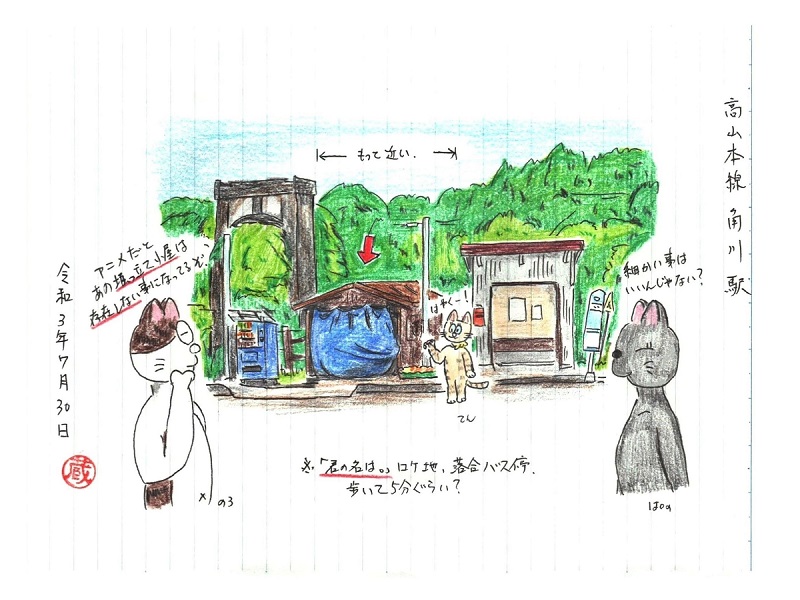 高山本線 角川駅
もって近い.
アニメだと
あの掘っ立て小屋は
存在しない事になってるぞ.
はやくー!
細かい事は
いいんじゃない?
令和3年7月30日
蔵
てん
の3
ぱの
※.『君の名は。』ロケ地、落合バス停.
歩いて5分ぐらい?